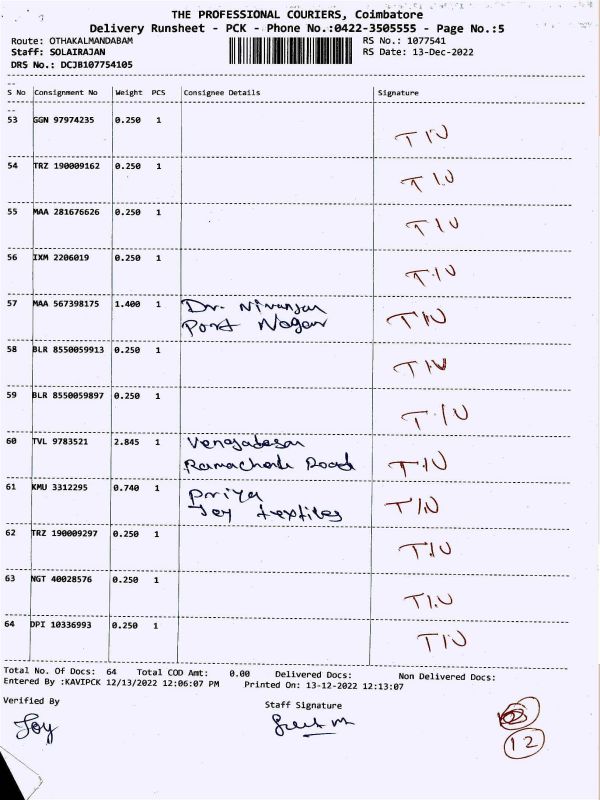 THE PROFESSIONAL COURIERS, Coimbatore
Delivery Runsheet - PCK - Phone No.:0422-3505555 - Page No.:5
Route: OTHAKALMANDABAM RS No.: 1077541
Staff: SOLAIRAJAN RS Date: 13-Dec-2022
DRS No.: DCJB107754105
S No Consignment No Weight PCS Consignee Details Signature
53 GGN 97974235 0.250 1 TIN
54 TRZ 190009162 0.250 1 TIN
55 MAA 281676626 0.250 1 TIN
56 IXM 2206019 0.250 1 TIN
57 MAA 567398175 1.400 1 Dr. Niranjan TIN
Port Nagar
58 BLR 8550059913 0.250 1 TIN
59 BLR 8550059897 0.250 1 TIN
60 TVL 9783521 2.845 1 TIN
Road
61 KMU 3312295 0.740 1 Priya TIN
Joy textiles
62 TRZ 190009297 0.250 1 TIN
63 NGT 40028576 0.250 1 TIN
64 DPI 10336993 0.250 1 TIN
Total No. Of Docs: 64 Total COD Amt: 0.00 Delivered Docs: Non Delivered Docs:
Entered By :KAVIPCK 12/13/2022 12:06:07 PM Printed On: 13-12-2022 12:13:07
Verified By Staff Signature
Joy
12